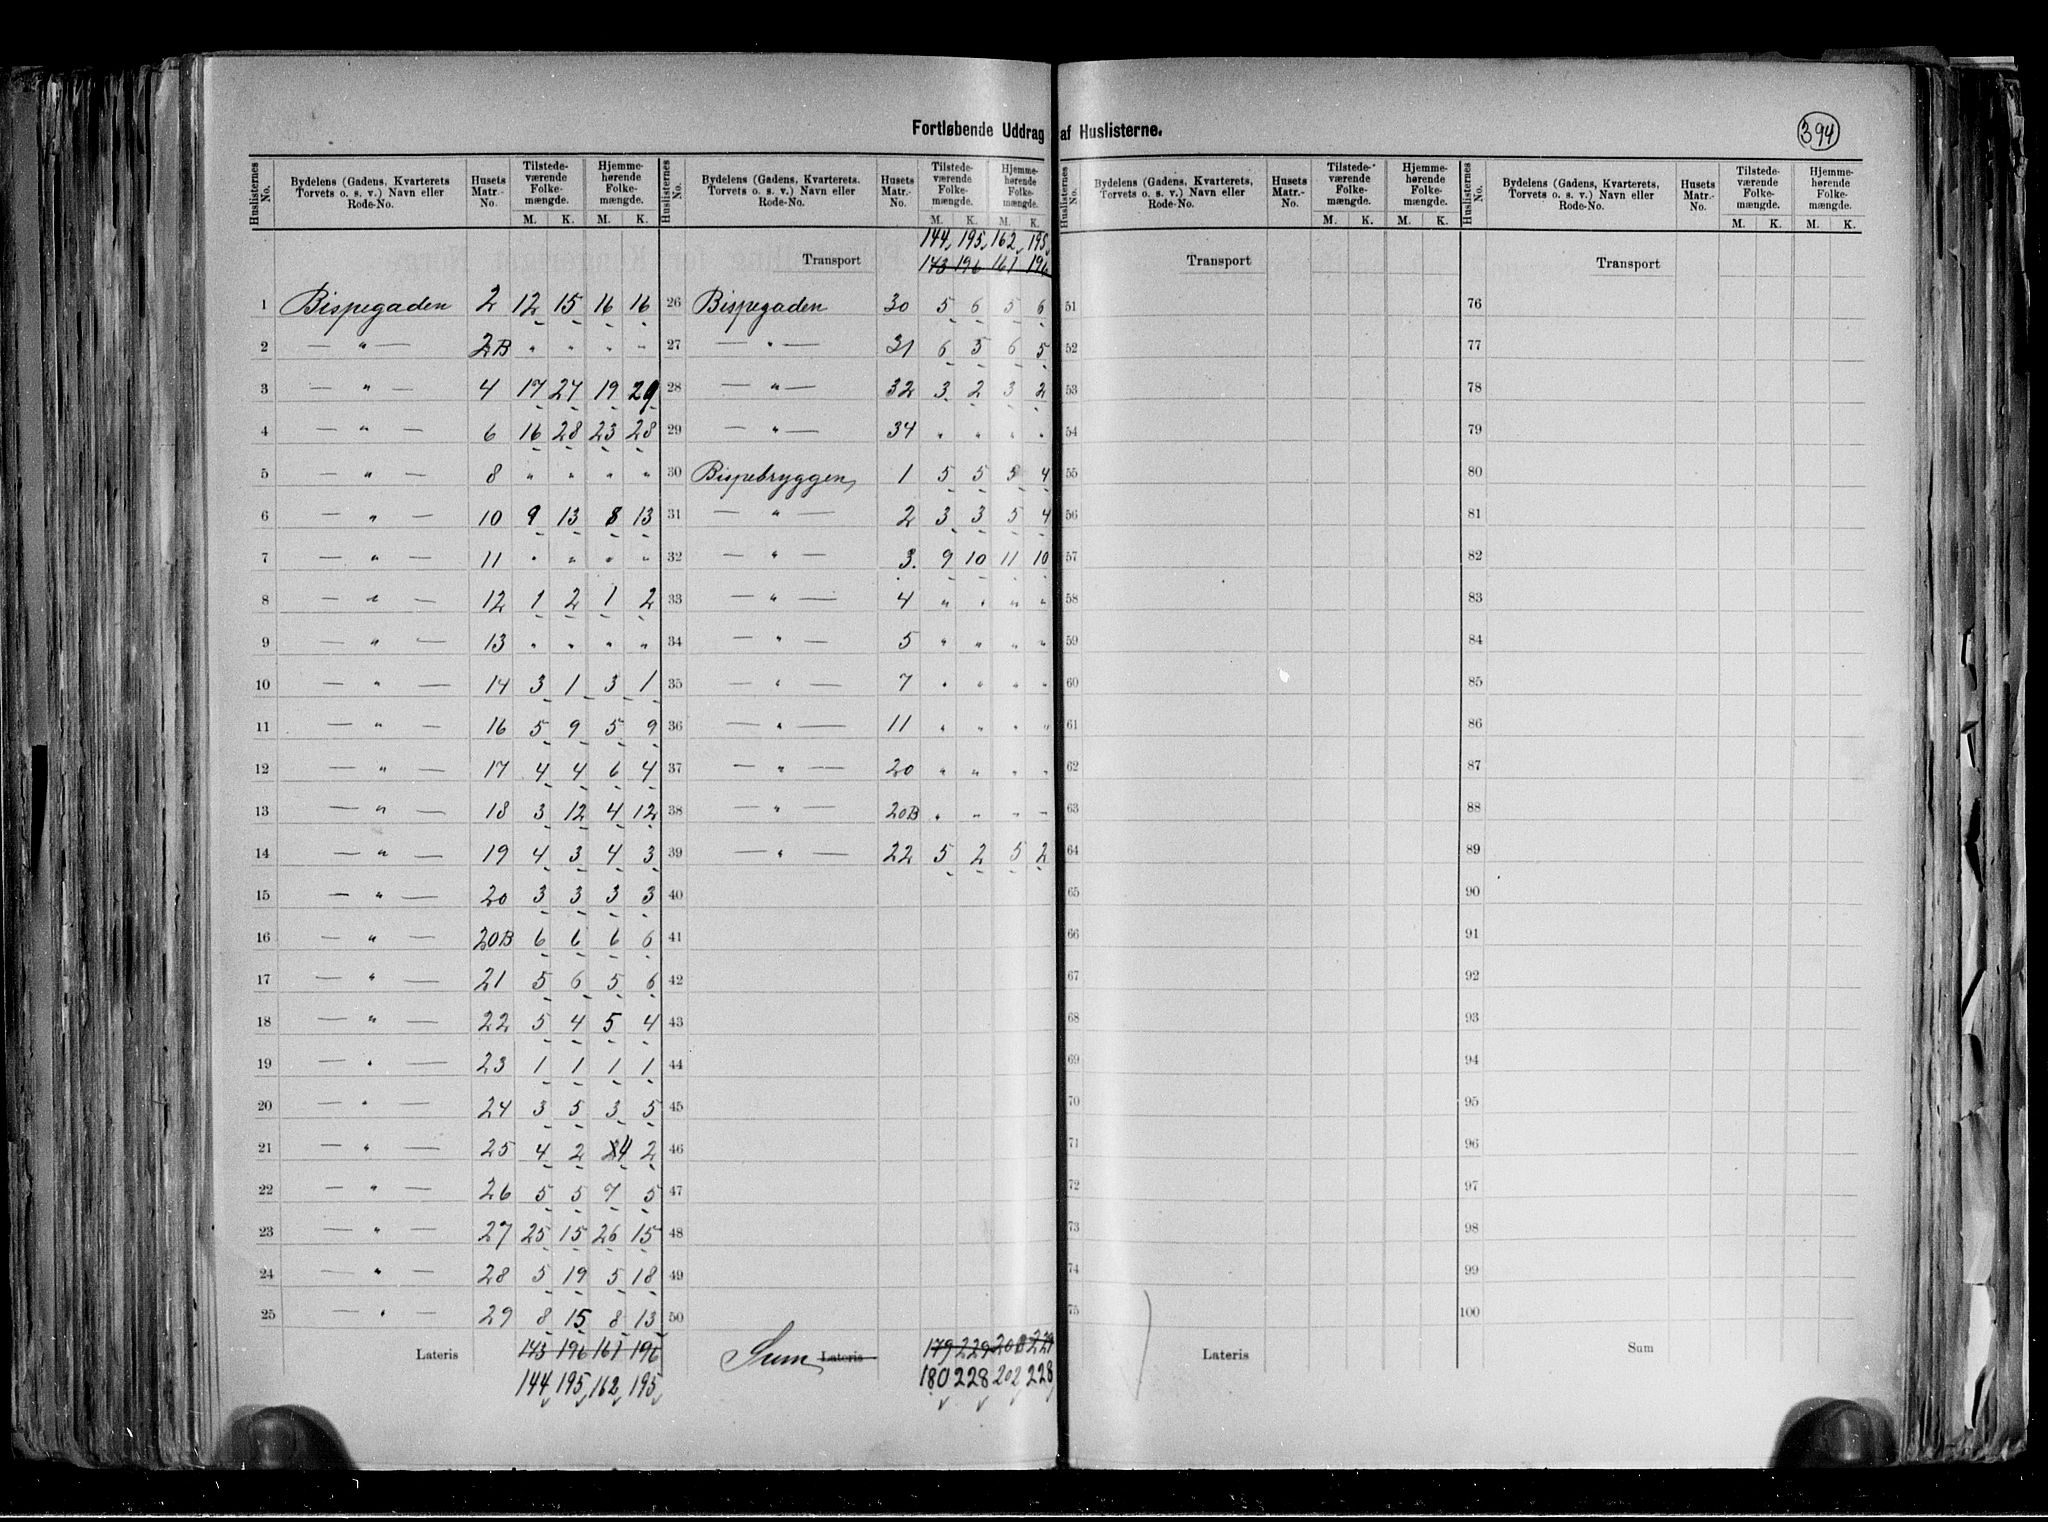 Fortløbende Uddrag af Huslisterne.
394
Huslisternes No. | Bydelens (Gadens, Kvarterets Torvets o. s. v.) Navn eller Rode-No. | Husets Matr.-No. | Tilstede-værende Folke-mængde. M. K. | Hjemme-hørende Folke-mængde. M. K.
1 Bispegaden 2 12 15 16 16
2 — " — 2B " " " "
3 — " — 4 17 27 19 29
4 — " — 6 16 28 23 28
5 — " — 8 " " " "
6 — " — 10 9 13 8 13
7 — " — 11 " " " "
8 — " — 12 1 2 1 2
9 — " — 13 " " " "
10 — " — 14 3 1 3 1
11 — " — 16 5 9 5 9
12 — " — 17 4 4 6 4
13 — " — 18 3 12 4 12
14 — " — 19 4 3 4 3
15 — " — 20 3 3 3 3
16 — " — 20B 6 6 6 6
17 — " — 21 5 6 5 6
18 — " — 22 5 4 5 4
19 — " — 23 1 1 1 1
20 — " — 24 3 5 3 5
21 — " — 25 4 2 4 2
22 — " — 26 5 5 7 5
23 — " — 27 25 15 26 15
24 — " — 28 5 19 5 18
25 — " — 29 8 15 8 13
Lateris 143 196 161 196
144 195 162 195
Huslisternes No. | Bydelens (Gadens, Kvarterets Torvets o. s. v.) Navn eller Rode-No. | Husets Matr.-No. | Tilstede-værende Folke-mængde. M. K. | Hjemme-hørende Folke-mængde. M. K.
144 195 162 195
Transport 143 196 161 196
26 Bispegaden 30 5 6 5 6
27 — " — 31 6 5 6 5
28 — " — 32 3 2 3 2
29 — " — 34 " " " "
30 Bispebryggen 1 5 5 5 4
31 — " — 2 3 3 5 4
32 — " — 3 9 10 11 10
33 — " — 4 " " " "
34 — " — 5 " " " "
35 — " — 7 " " " "
36 — " — 11 " " " "
37 — " — 20 " " " "
38 — " — 20B " " " "
39 — " — 22 5 2 5 2
40
41
42
43
44
45
46
47
48
49
50
Sum Lateris 179 229 229
180 228 202 228
Huslisternes No. | Bydelens (Gadens, Kvarterets, Torvets o. s. v.) Navn eller Rode-No. | Husets Matr.-No. | Tilstede-værende Folke-mængde. M. K. | Hjemme-hørende Folke-mængde. M. K.
Transport
51
52
53
54
55
56
57
58
59
60
61
62
63
64
65
66
67
68
69
70
71
72
73
74
75
Lateris
Huslisternes No. | Bydelens (Gadens, Kvarterets, Torvets o. s. v.) Navn eller Rode-No. | Husets Matr.-No. | Tilstede-værende Folke-mængde. M. K. | Hjemme-hørende Folke-mængde. M. K.
Transport
76
77
78
79
80
81
82
83
84
85
86
87
88
89
90
91
92
93
94
95
96
97
98
99
100
Sum